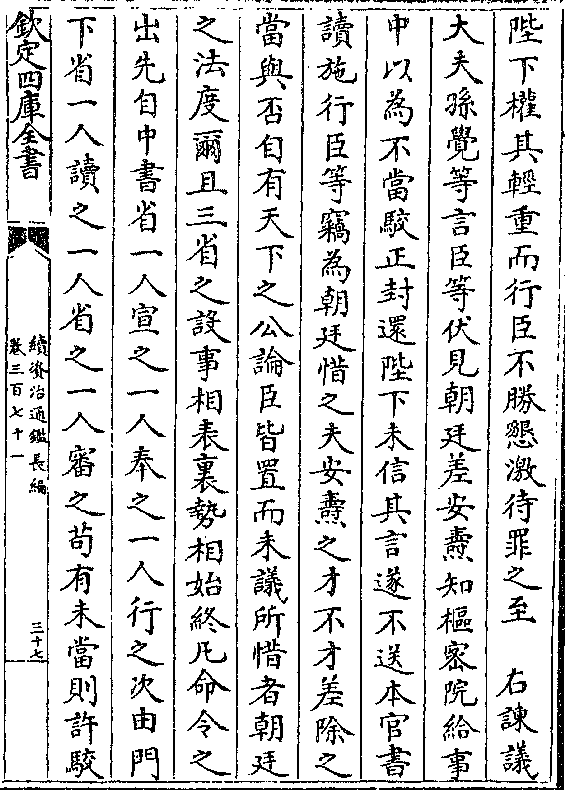 陛下權其輕重而行臣不勝懇激待罪之至　右諫議
大夫孫覺等言臣等伏見朝廷差安燾知樞密院給事
中以為不當駮正封還陛下未信其言遂不送本官書
讀施行臣等竊為朝廷惜之夫安燾之才不才差除之
當與否自有天下之公論臣皆置而未議所惜者朝廷
之法度爾且三省之設事相表裏勢相始終凡命令之
出先自中書省一人宣之一人奉之一人行之次由門
下省一人讀之一人省之一人審之苟有未當則許駮
欽定四庫全書
續資治通鑑長編
卷三百七十一
三十七